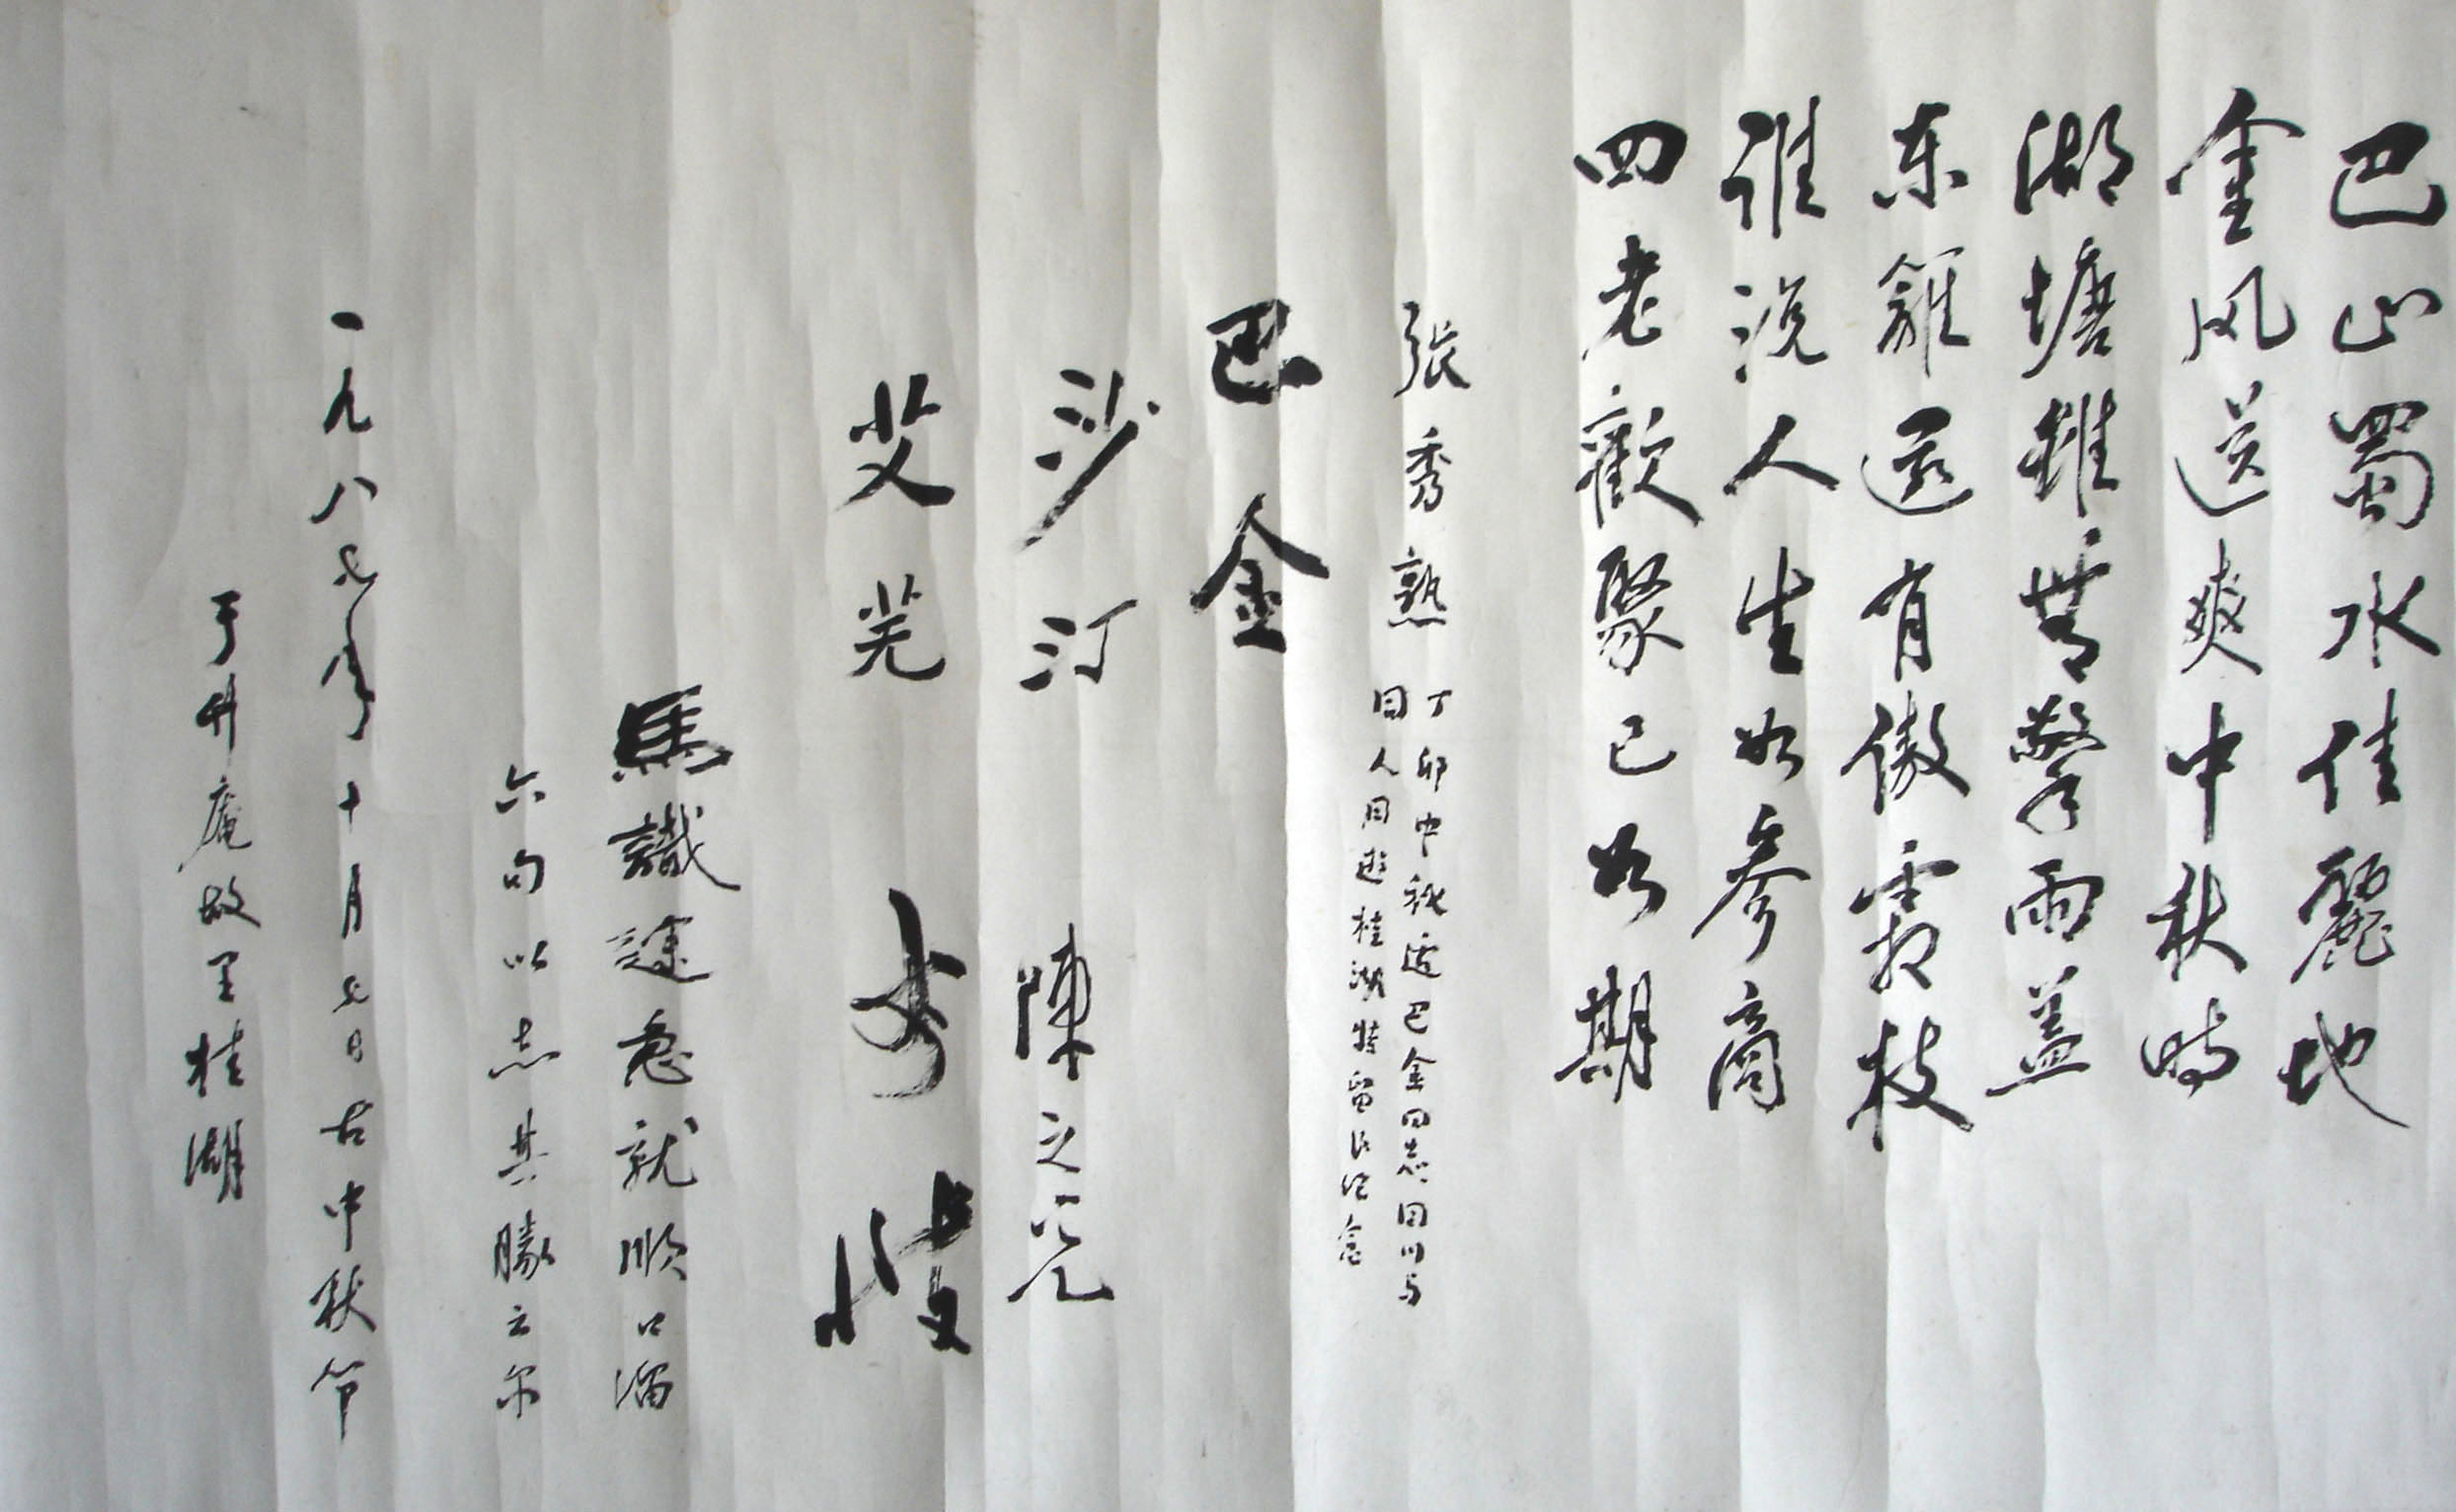 巴山蜀水佳麗地
金风送爽中秋時
湖塘雖無擎雨蓋
东籬還有傲霜枝
谁说人生如参商
四老歡聚已如期
張秀熟
丁卯中秋适巴金同志回川与
同人同遊桂湖特留此纪念
巴金
沙汀 陳之光
艾芜 李致
馬識途急就順口溜
六句以志其勝云尔
一九八七年十月七日古中秋节
于升庵故里桂湖